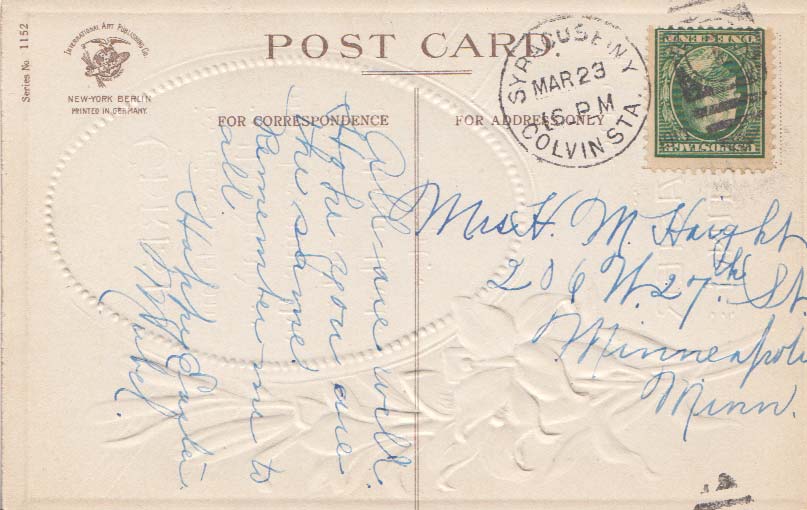 Series No. 1152
INTERNATIONAL ART PUBLISHING CO.
NEW-YORK BERLIN
PRINTED IN GERMANY.
POST CARD.
SYRACUSE N.Y.
MAR 23
6 PM
COLVIN STA.
FOR CORRESPONDENCE
FOR ADDRESS ONLY
All are well.
Hope you are
the same.
Remember me to
all.
Happy Easter.
Mrs H. M. Haight
206 W. 27th St.
Minneapoli
Minn.